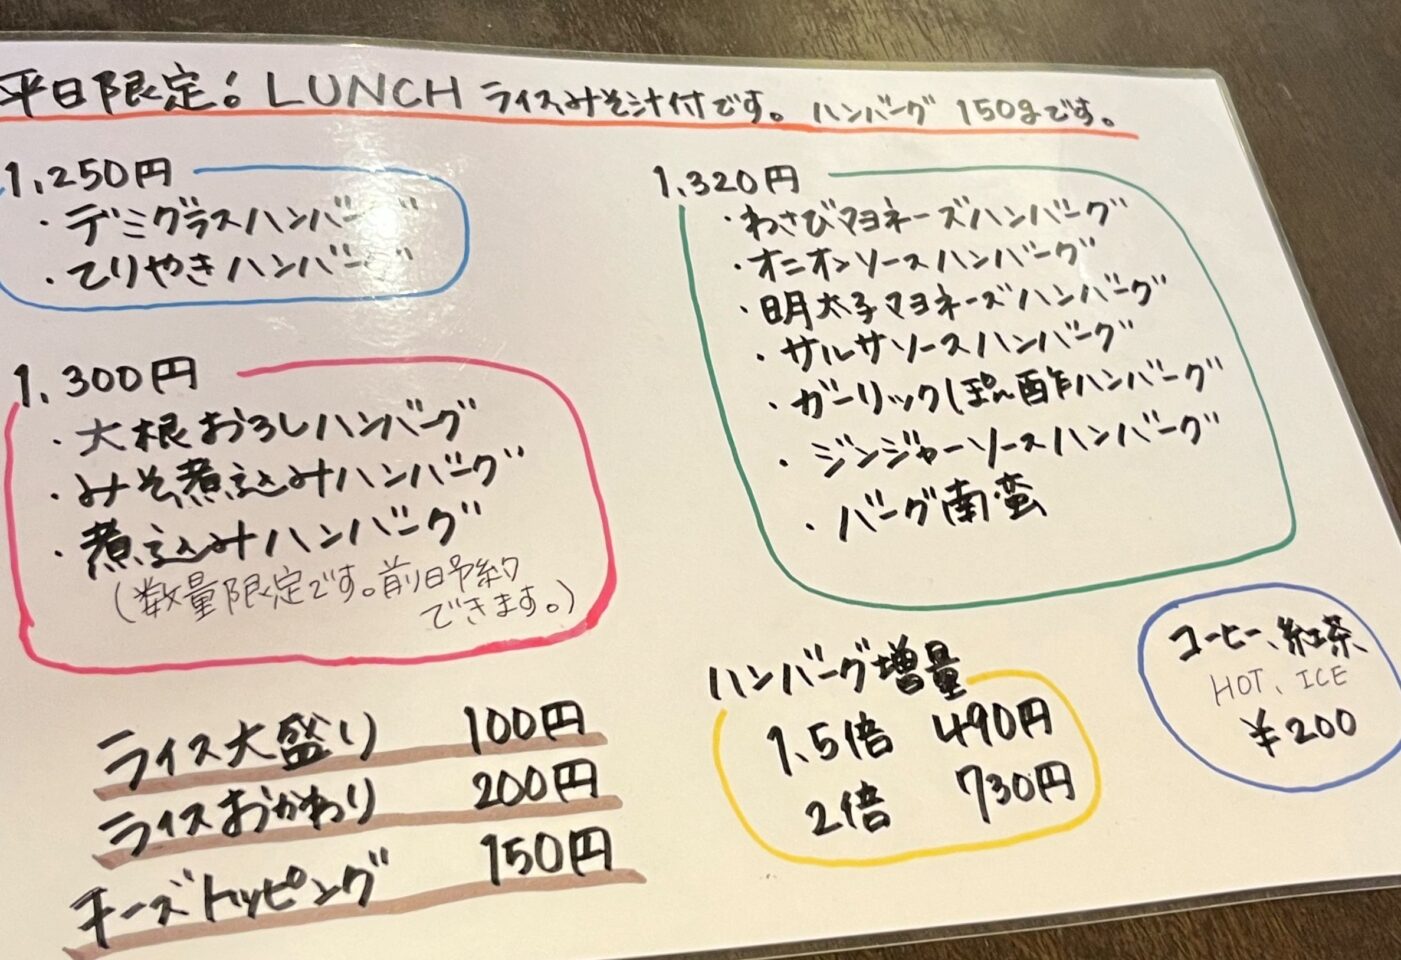 平日限定! LUNCH ライス、みそ汁付です。 ハンバーグ 150gです。
1,250円
・デミグラスハンバーグ
・てりやきハンバーグ
1,300円
・大根おろしハンバーグ
・みそ煮込みハンバーグ
・煮込みハンバーグ
(数量限定です。前日予約
できます。)
1,320円
・わさびマヨネーズハンバーグ
・オニオンソースハンバーグ
・明太子マヨネーズハンバーグ
・サルサソースハンバーグ
・ガーリックぽん酢ハンバーグ
・ジンジャーソースハンバーグ
・バーグ南蛮
ライス大盛り 100円
ライスおかわり 200円
チーズトッピング 150円
ハンバーグ増量
1.5倍 490円
2倍 730円
コーヒー、紅茶
HOT、ICE
¥200